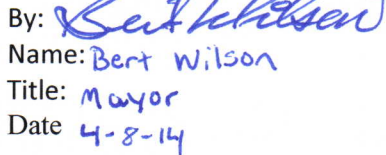 By: Bert Wilson
Name: Bert Wilson
Title: Mayor
Date 4-8-14